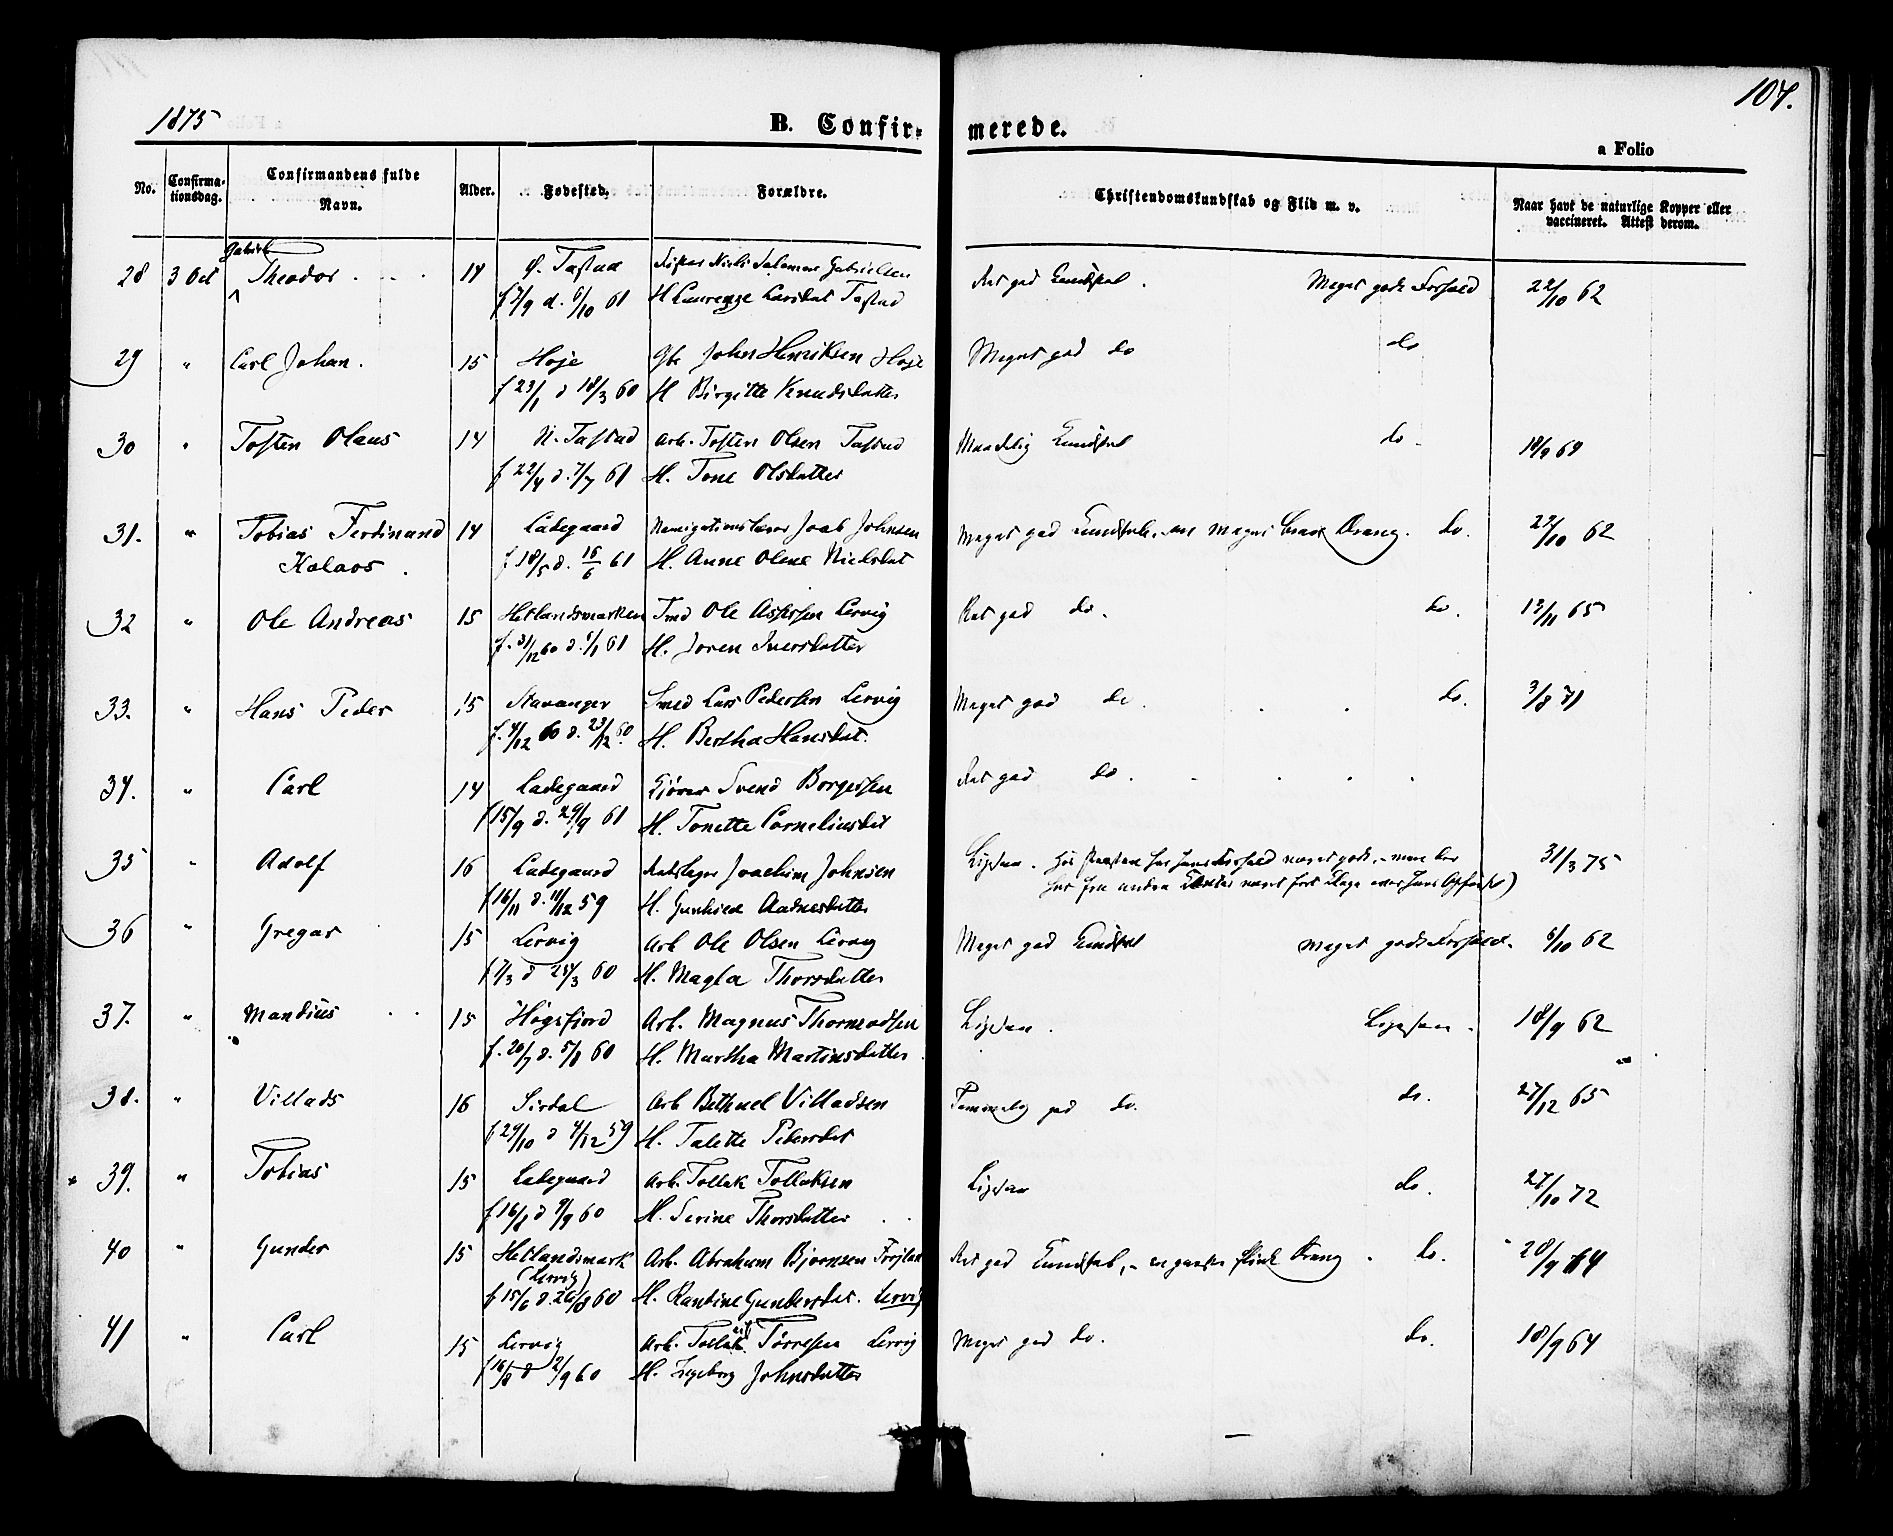 104.
1875
B. Confirmerede.
a Folio
No. Confirmationsdag. Confirmandens fulde Navn. Alder. Fødested. Forældre. Christendomskundskab og Flid m. v. Naar havt de naturlige Kopper eller vaccineret. Attest derom.
Gabriel
28 3 Oct Theodor 14 Ø. Tastad Fisker Niels Salomon Gabrielsen Ret god Kundskab. Meget godt Forhold 22/10 62
f 7/9 d. 6/10 61 H Laurenze Larsdat Tastad
29 " Carl Johan. 15 Hoje Gbr John Henriksen Hoje Meget god do do
f 23/1 d 18/3 60 H Birgitte Knudsdatter
30 " Tosten Olaus 14 N. Tastad Arb. Tosten Olsen Tastad Maadelig Kundskab do. 18/9 69
f 22/4 d. 7/7 61 H. Tone Olsdatter
31. " Tobias Ferdinand 14 Ladegaard Navigationslærer Joab Johnsen Meget god Kundskab, en meget brav Dreng. do. 22/10 62
Kolaos. f 18/5 d. 16/6 61 H. Anne Oline Nielsdat
32 " Ole Andreas 15 Hetlandsmarken Smd Ole Lervig Ret god do. do. 13/11 65
f. 31/12 60 d. 1/1 61 H. Joren Iversdatter
33. " Hans Peder 15 Stavanger Smed Lars Pedersen Lervig Meget god do. do. 3/8 71
f. 4/12 60 d. 23/12 60. H. Bertha Hansdat.
34. " Carl 14 Ladegaard Kjører Svend Borgersen Ret god do.
f 15/9 d. 29/9 61 H. Tonette Corneliusdat
35 " Adolf 16 Ladegaard Joachim Johnsen Ligesaa. Hos Præsten har hans Forhold været godt, men der 31/3 75
f 16/11 d. 11/12 59 H. Gunhild Aadnesdatter har fra andre været ført Klage over hans Opførsel)
36 " Gregar 15 Lervig Arb Ole Olsen Lervig Meget god Kundskab meget godt Forhold. 6/10 62
f 7/3 d 25/3 60 H. Magla Thorsdatter
37. " Mandius 15 Høgsfjord Arb. Magnus Thormodsen Ligesaa. Ligesaa. 18/9 62
f. 20/7 d. 5/8 60 H. Martha Martinsdatter
38. " Villads 16 Sirdal Arb Bethuel Villadsen Temmelig god do. do. 27/12 65
f 29/10 d 4/12 59 H. Talette Pedersdat
39. " Tobias 15 Ladegaard Arb. Tollak Tollaksen Ligesaa do. 27/10 72
f 16/8 d 9/9 60 H. Serine Thorsdatter
40 " Gunder 15 Hetlandsmark Arb. Abraham Bjørnsen Ret god Kundskab, en ganske flink Dreng. do. 28/9 64
(Lervig)
f 15/6 d. 26/8 60 H. Rantine Gundersdat. Lervig
41 " Carl 15 Lervig Arb. Tollak Tørresen Lervig Meget god do. do. 18/9 64
f 16/8 d 2/9 60 H. Ingeborg Johnsdatter